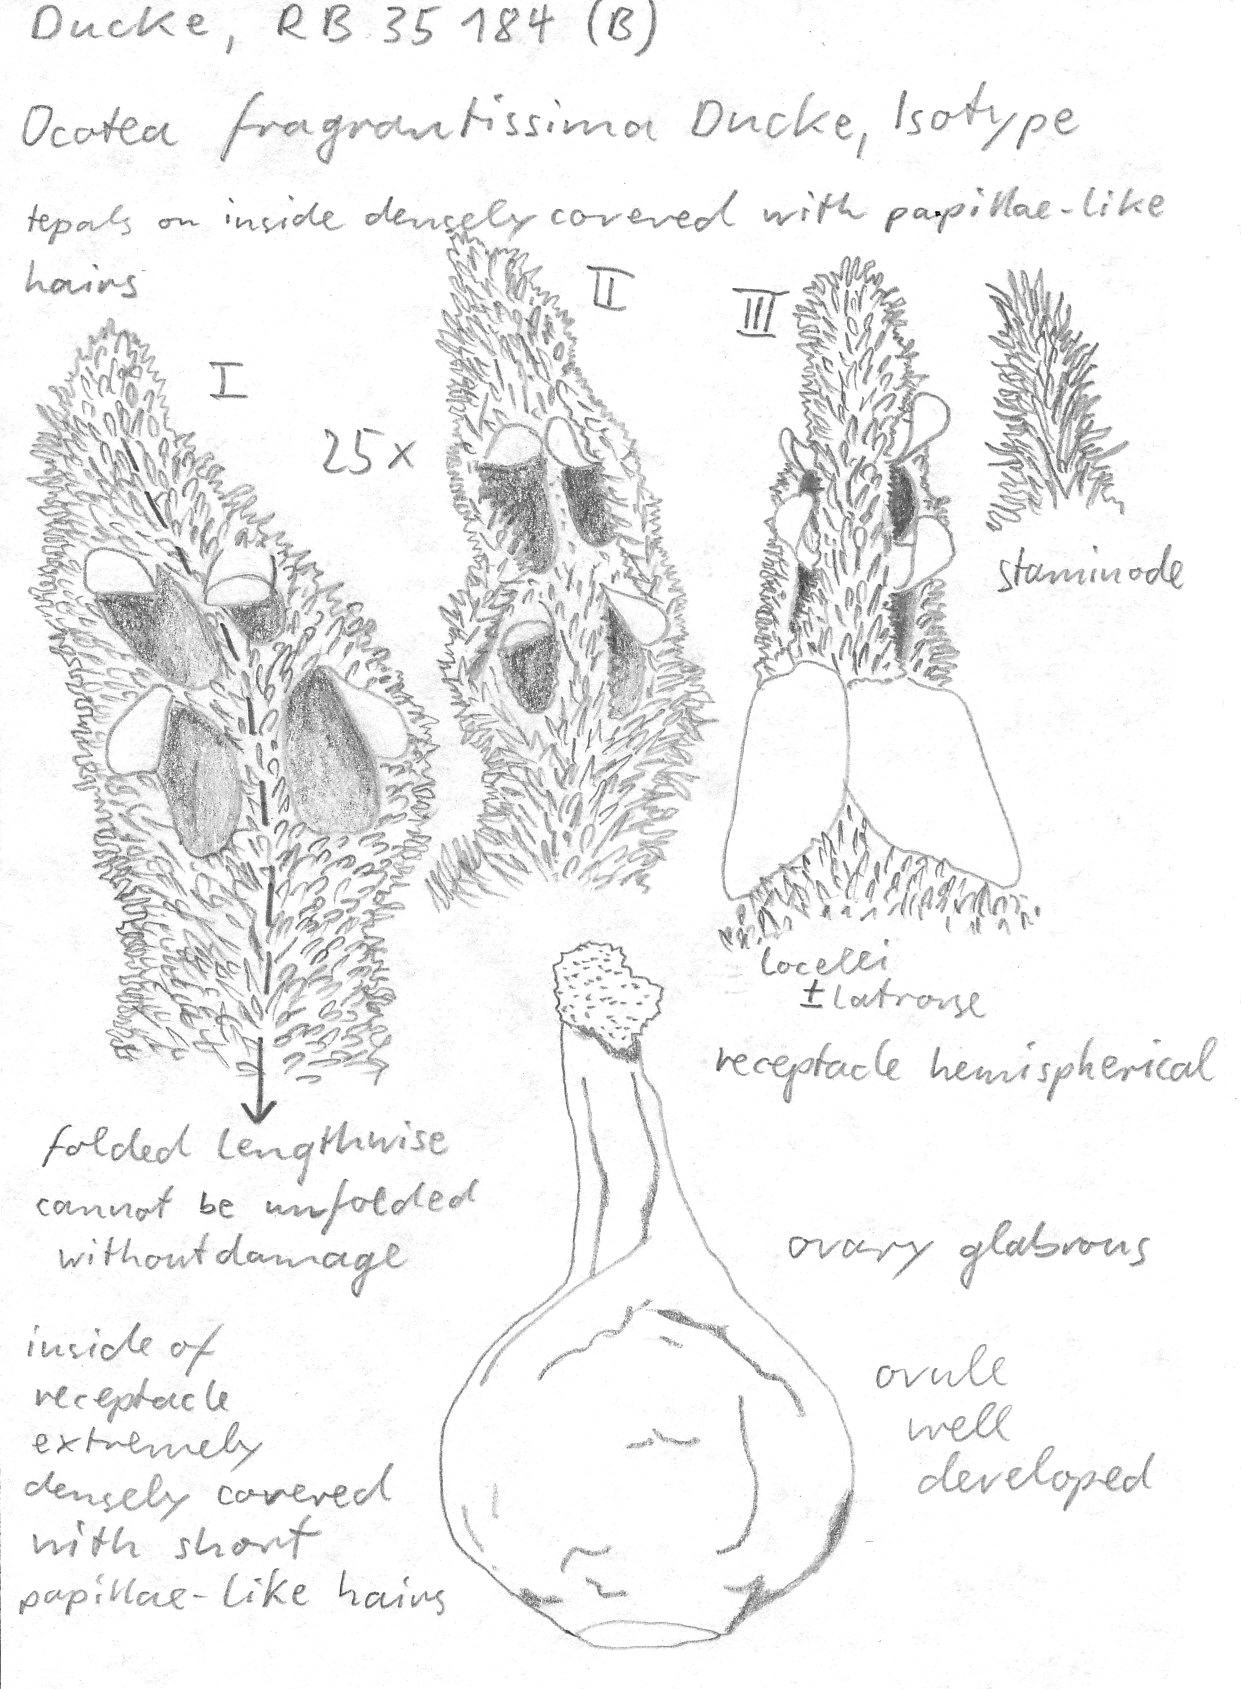 Ducke, RB 35 184 (B)
Ocotea fragrantissima Ducke, Isotype
tepals on inside densely covered with papillae-like
hairs
I
II
III
25x
staminode
locelli
± latrorse
receptacle hemispherical
folded lengthwise
cannot be unfolded
without damage
ovary glabrous
inside of
receptacle
extremely
densely covered
with short
papillae-like hairs
ovule
well
developed